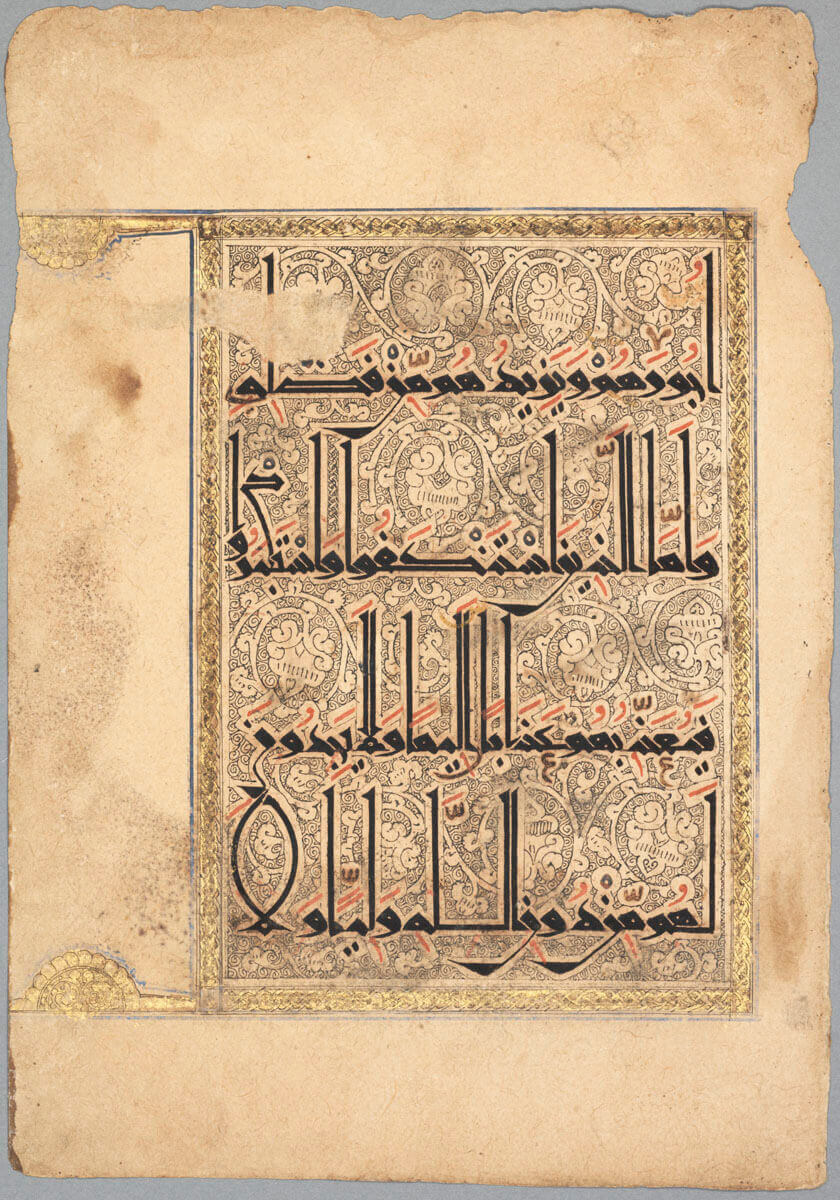 أُجُورَهُمْ وَيَزِيدُهُم مِّن فَضْلِهِ
وَأَمَّا الَّذِينَ اسْتَنكَفُوا وَاسْتَكْبَرُوا
فَيُعَذِّبُهُمْ عَذَابًا أَلِيمًا وَلَا يَجِدُونَ
لَهُم مِّن دُونِ اللَّهِ وَلِيًّا وَلَا